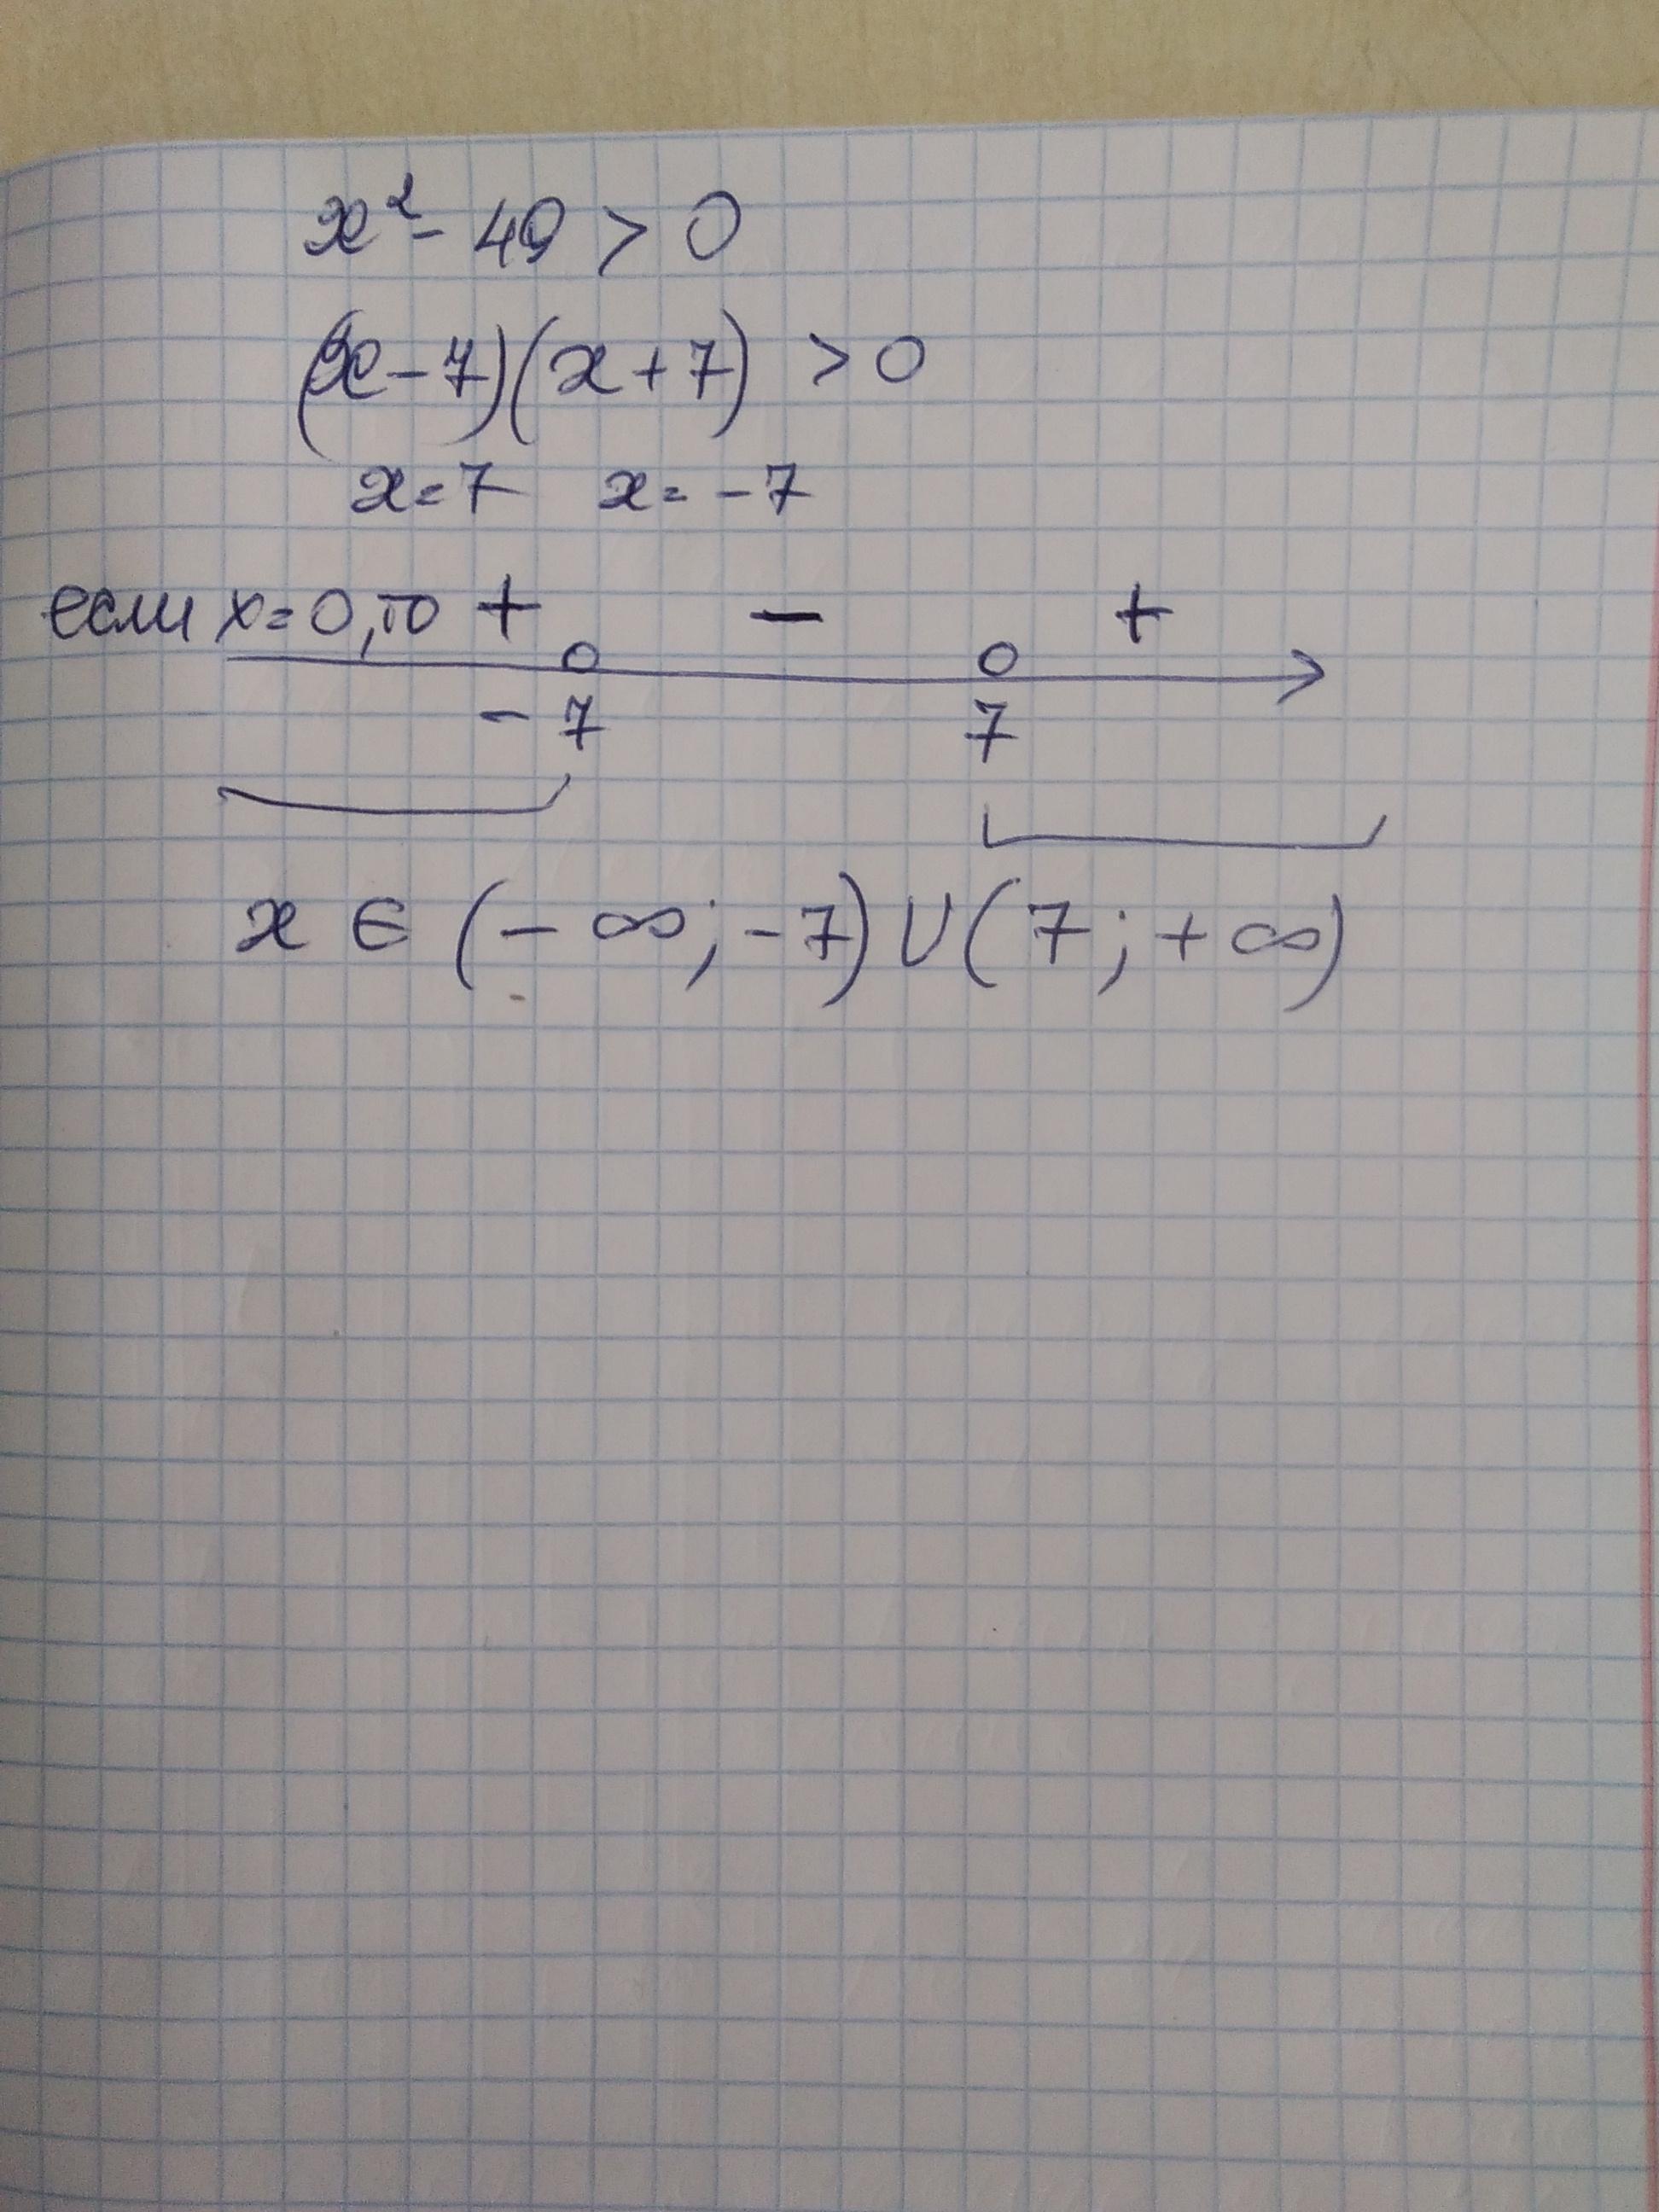 x² - 49 > 0
(x - 7)(x + 7) > 0
x = 7 x = -7
если x = 0, то + - +
-7 7
x ∈ (-∞; -7) ∪ (7; +∞)